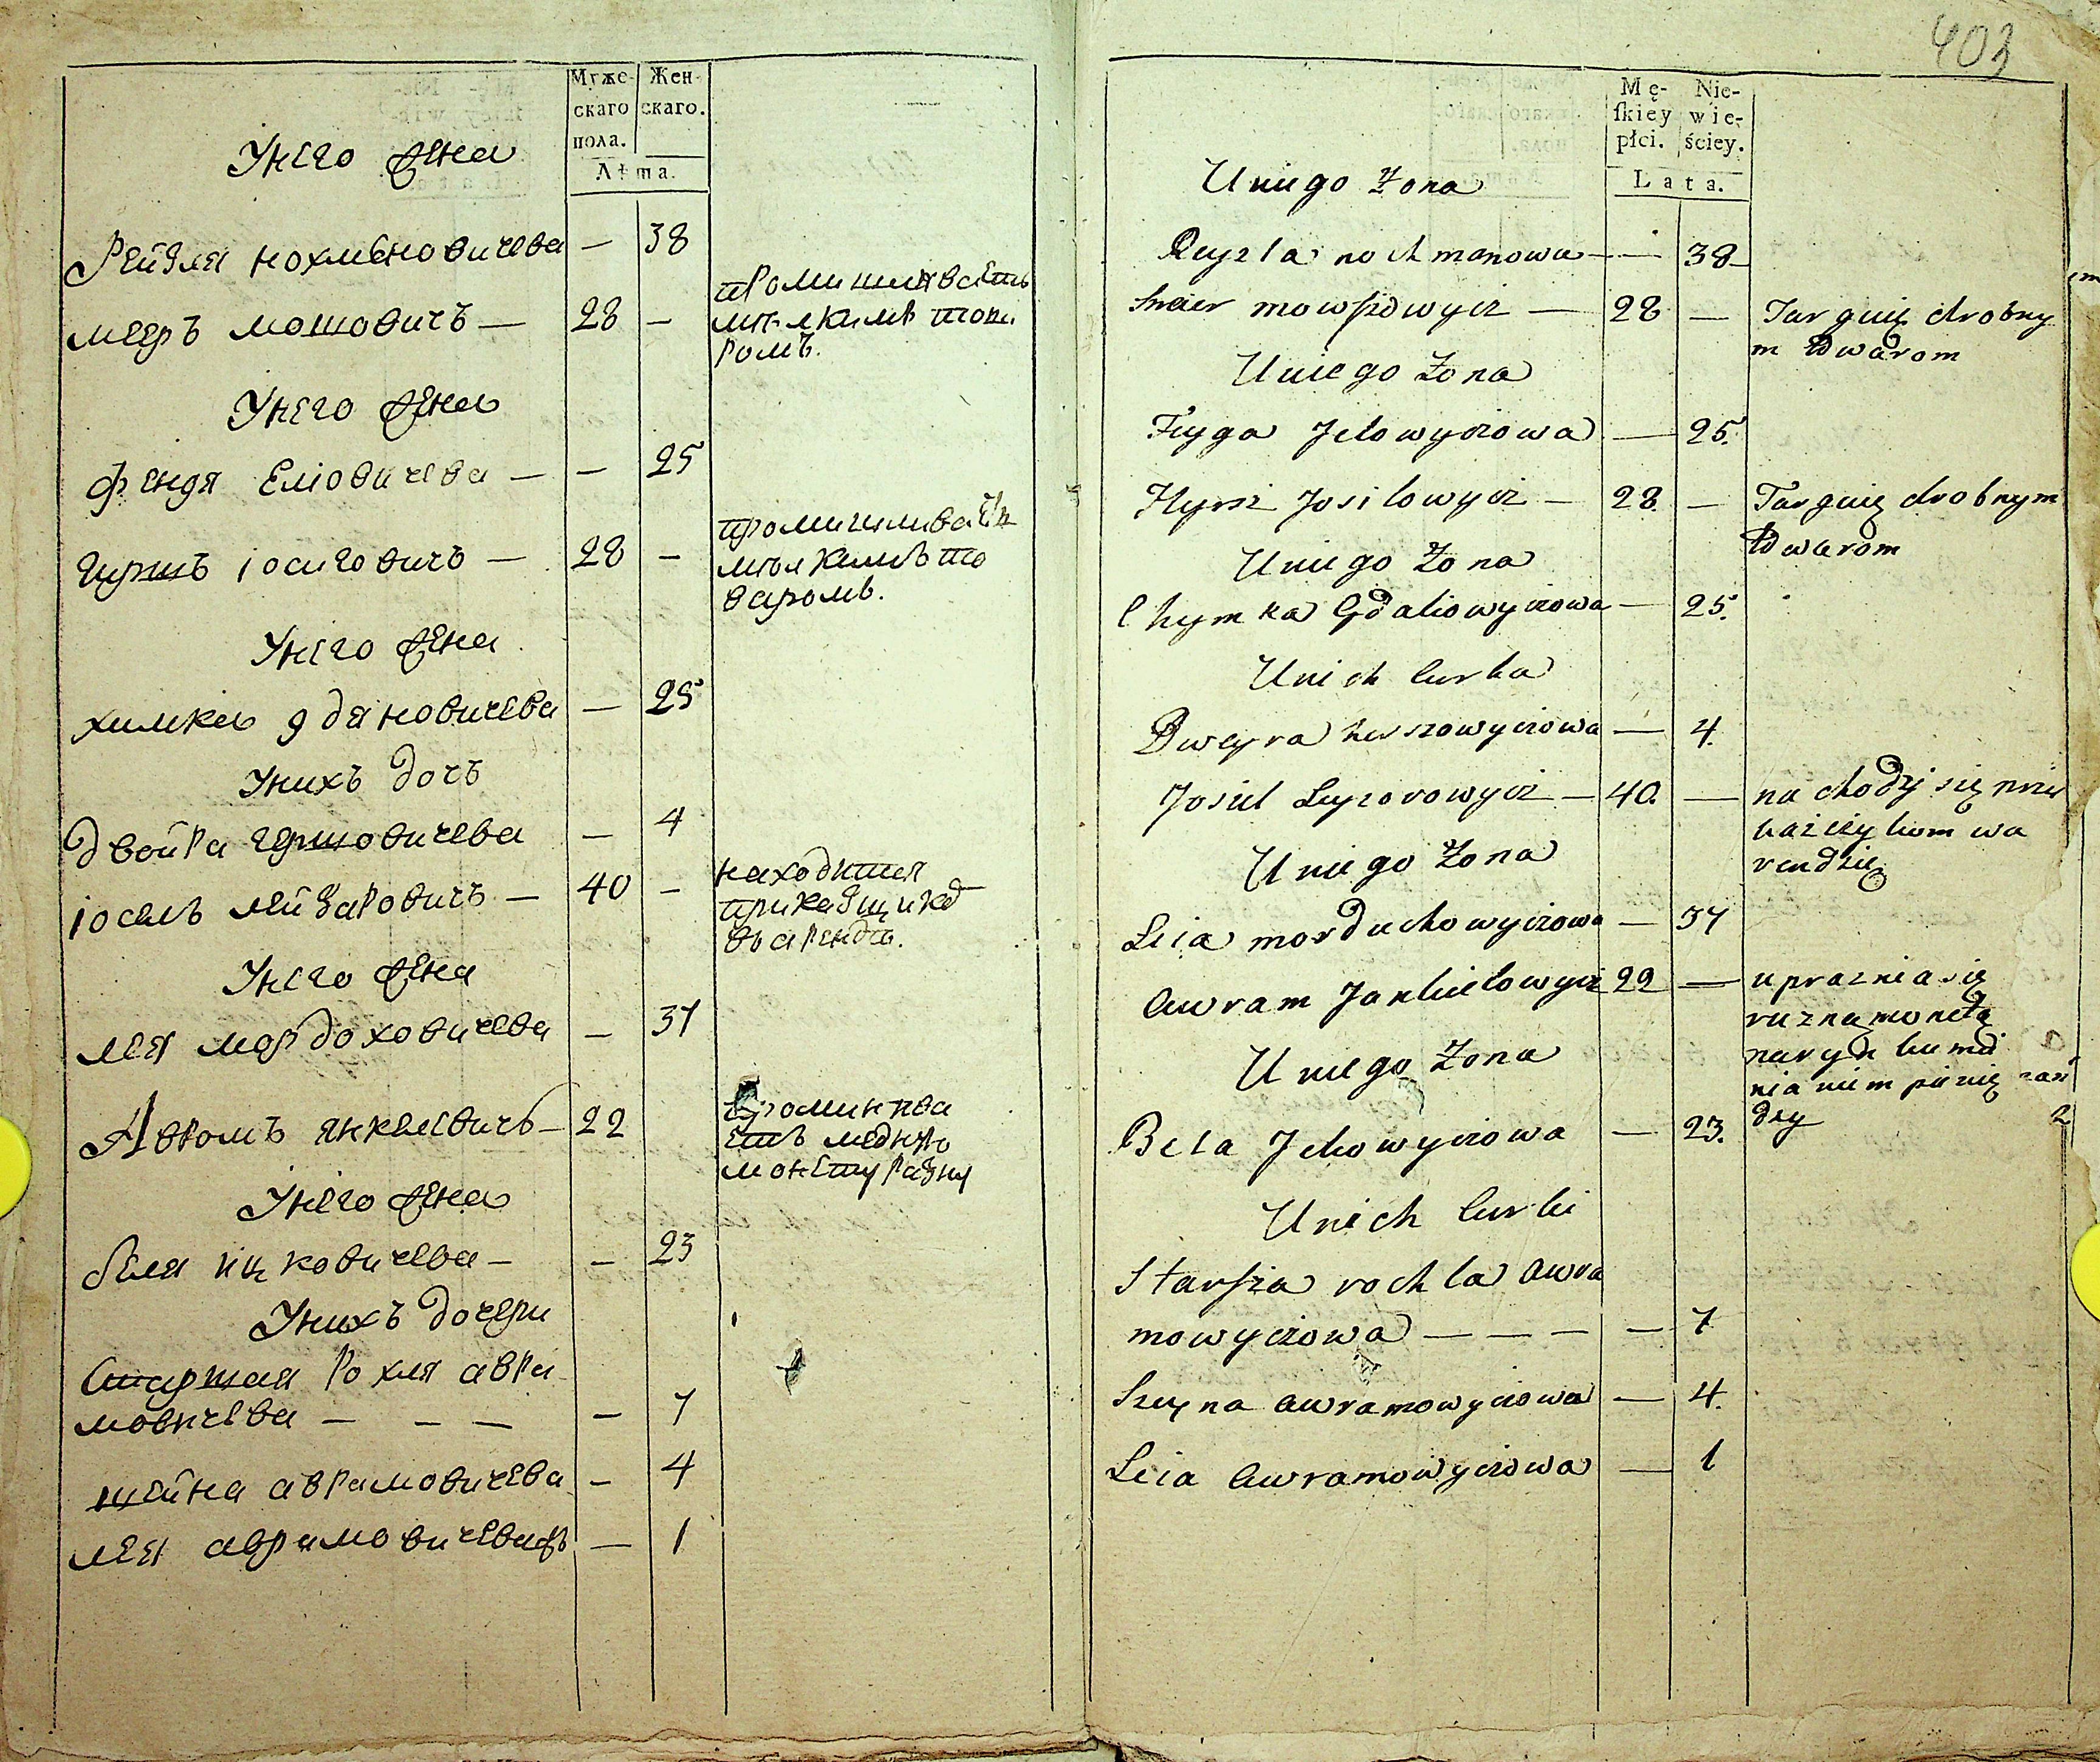 Муже-
скаго
пола.
Жен-
скаго.
Лѣта.
Унего жена
Рейзля нохмѣновичева — 38
промишляваетъ
мееръ мошовичъ — 28 — мѣлкимъ това
ромъ.
Унего жена
фейдя еліовичева — — 25
промишлива
гершъ іосиговичъ — 28 — мѣлкимъ то
варомъ.
Унего жена
химка гдановичева — 25
Унихъ дочь
двойра гершовичева — 4
находится
іосель лейзаровичъ — 40 — прикащико
въ арендѣ.
Унего жена
лея мордоховичева — 37
Авромъ янкелевичъ — 22
проминева
етъ медную
монету разну
Унего жена
беля ицковичева — — 23
Унихъ дочери
Старшая рохля авра
мовичева — — — — 7
шейна аврамовичева — 4
лея аврамовичева — 1
403
Mę-
skiey
płci.
Nie-
wie-
ściey.
Lata.
Uniego Żona
Reyzla nochmanowa — — 38
meier mowszowycz — 28 — Targuię drobny
m towarom
Uniego Żona
Feyga Jelowyczowa — 25.
Hersz Josilowycz — 28. — Targuię drobnym
towarom
Uniego Żona
Chymka Gdaliowyczowa — 25.
Unich Curka
Dweyra herszowyczowa — 4.
Josiel Leyzorowycz — 40. — na chodzi się przy
każczykom wa
rendzie
Uniego Żona
Leia morduchowyczowa — 37
Awram Jankielowycz 22 — uprazniasię
ruzną monetą
Uniego Żona
nia niem pienię
Bela Jckowyczowa — 23. dzy
Unich Curki
Starsza rochla Awra
mowyczowa — — — — 7
Szeyna awramowyczowa — 4.
Leia Awramowyczowa — 1